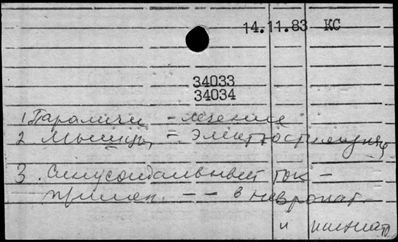 14.11.83 КС
34033
34034
1 Параличи – лечение
2 Мышцы, – электростимуляция
3. Синусоидальный ток –
примен. – – в невропат.
и